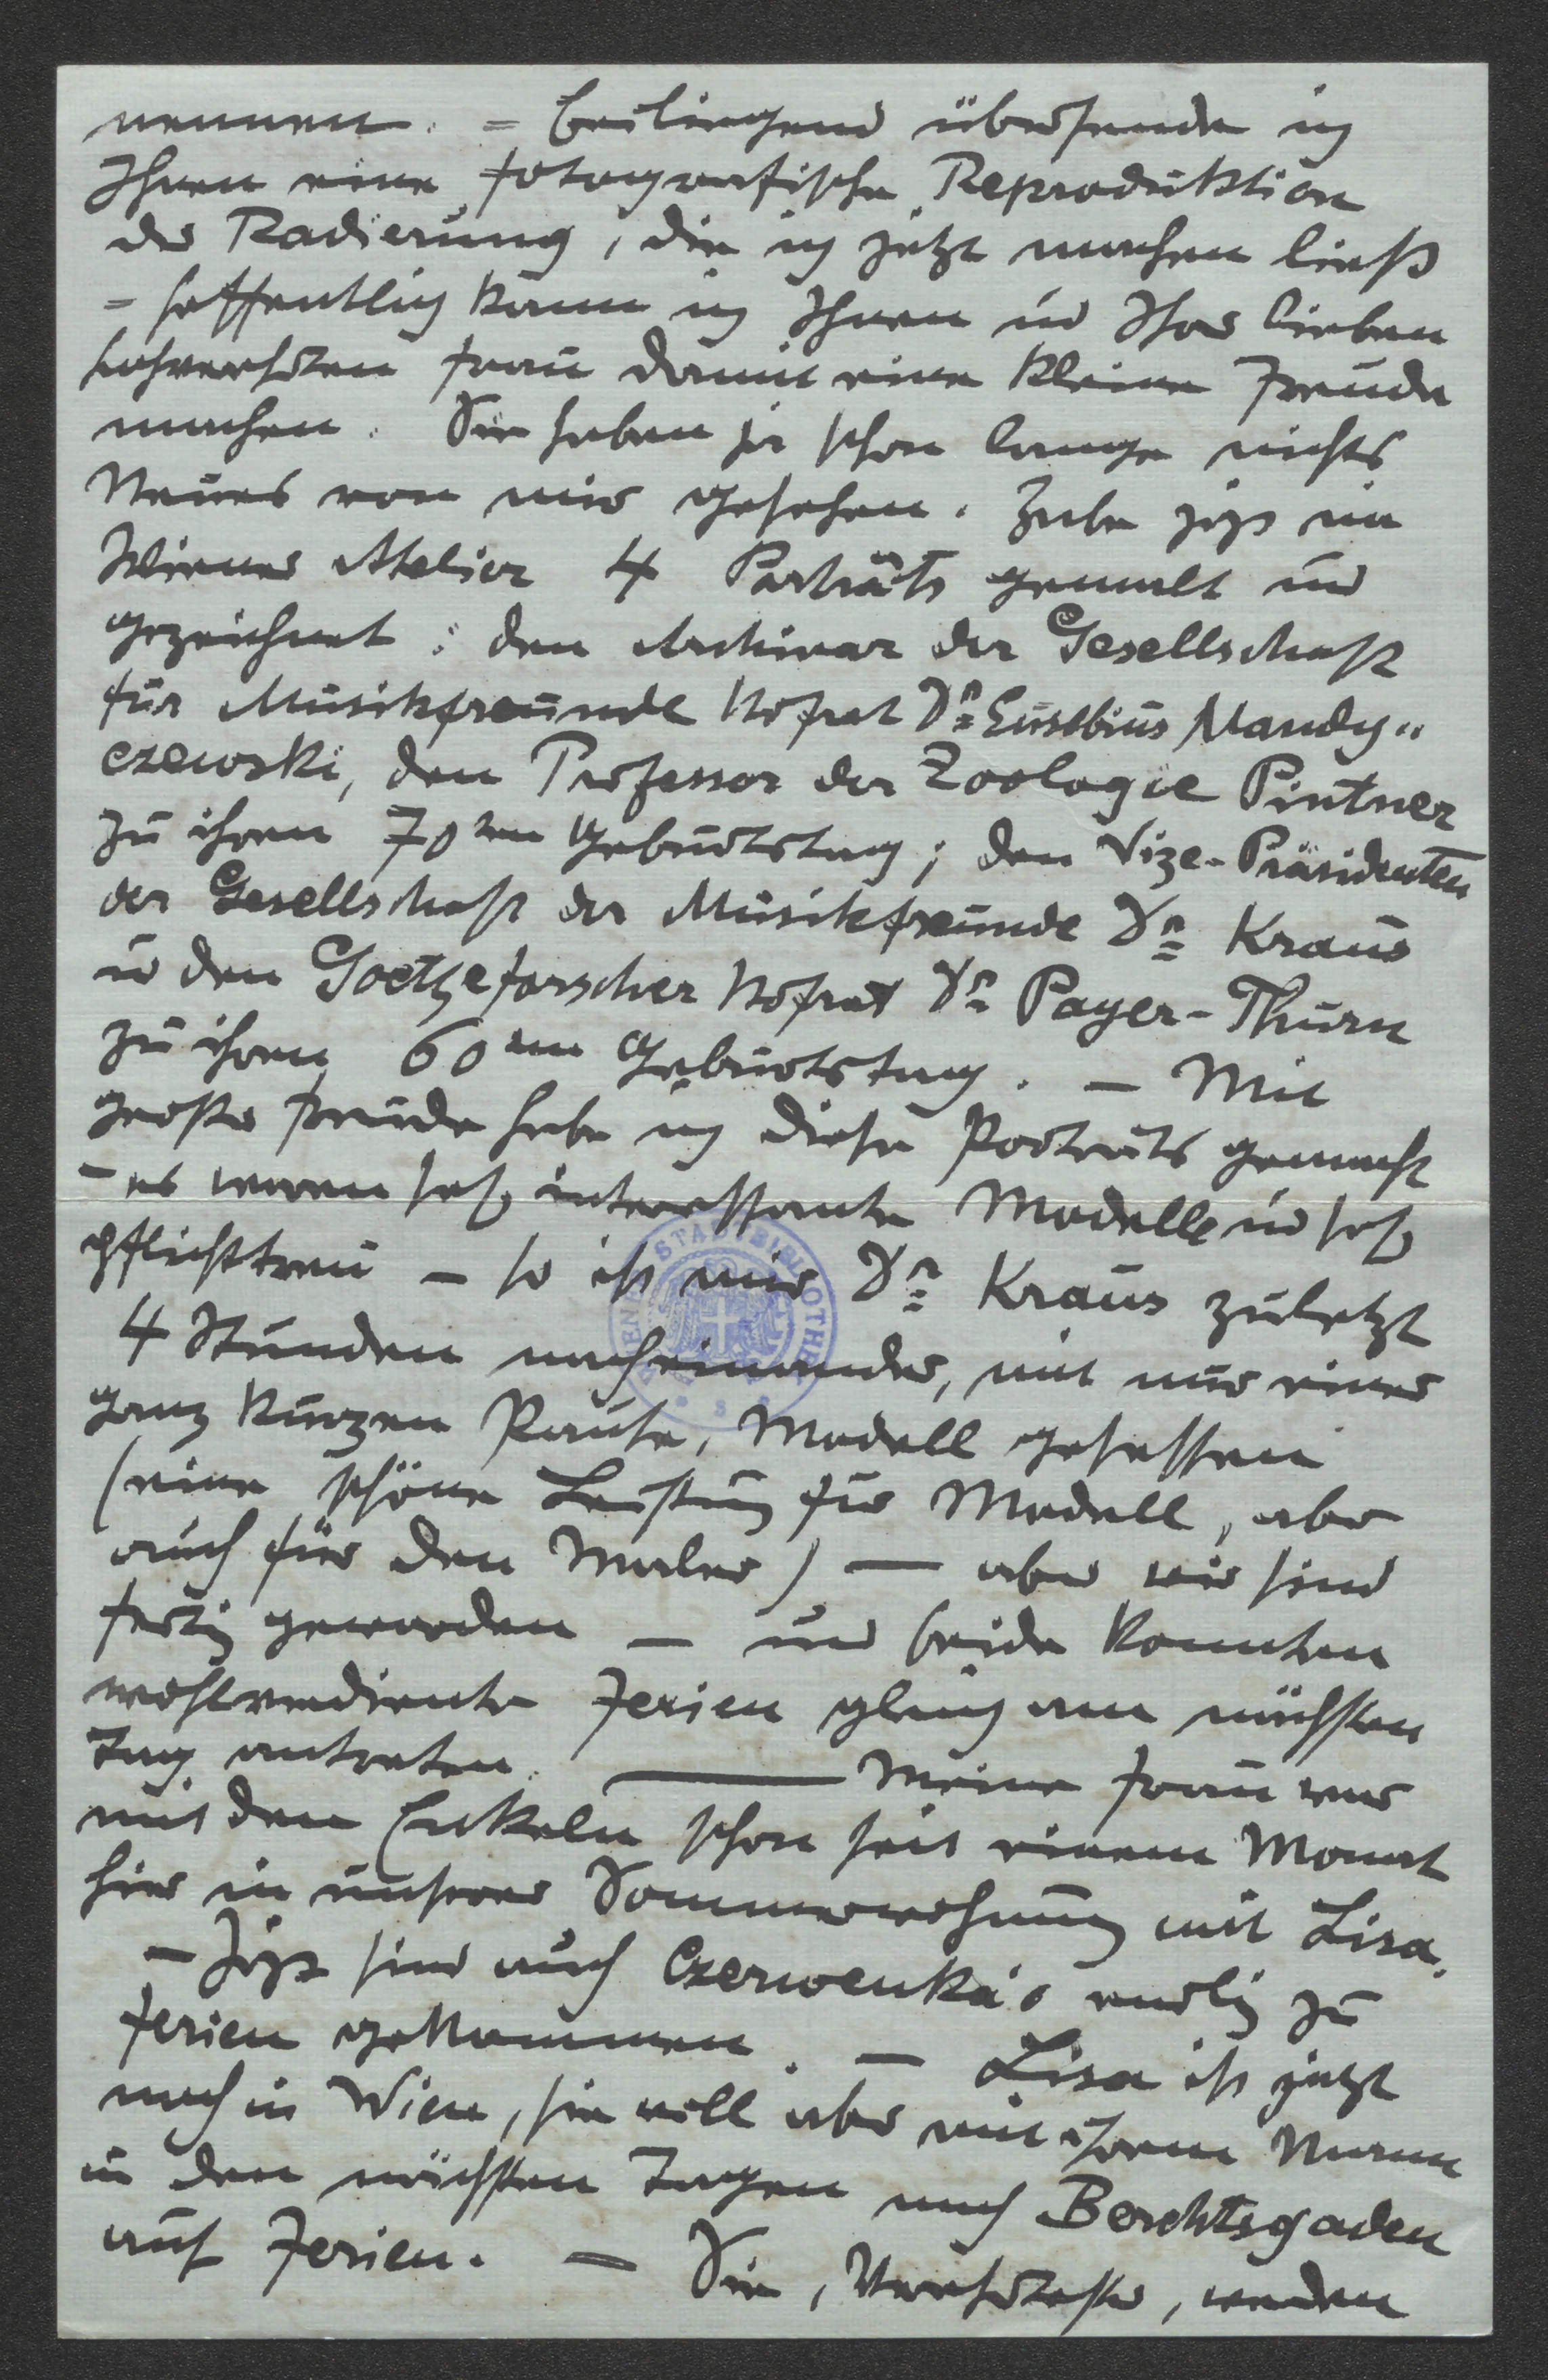 nennen. = Beiliegend übersende ich
Ihnen eine fotografische Reproduktion
der Radierung, die ich jetzt machen ließ
= hoffentlich kann ich Ihnen u Ihrer lieben
hochverehrten Frau damit eine kleine Freude
machen. Sie haben ja schon lange nichts
Neues von mir gesehen. Habe jetzt im
Wiener Atelier 4 Porträts gemalt und
gezeichnet: den Archivar der Gesellschaft
für Musikfreunde Hofrat Dr. Eusebius Mandy„
czewski, den Professor der Zoologie Pintner
zu ihren 70ten Geburtstag; den Vize-Präsidenten
der Gesellschaft der Musikfreunde Dr. Kraus
u den Goetheforscher Hofrat Dr. Payer-Thurn
zu ihren 60ten Geburtstag. – Mit
großer Freude habe ich diese Porträts gemacht
– es waren sehr interessante Modelle u sehr
pflichttreu – so ist mir Dr. Kraus zuletzt
4 Stunden nacheinander, mit nur einer
ganz kurzen Pause, Modell gesessen
(eine schöne Leistung für Modell, aber
auch für den Maler) – aber wir sind
fertig geworden – und beide konnten
wohlverdiente Ferien gleich am nächsten
Tag antreten. — Meine Frau war
mit den Enkeln schon seit einem Monat
hier in unserer Sommerwohnung mit Lisa.
– Jetzt sind auch Czerwenka's endlich zu
Ferien gekommen. – Lisa ist jetzt
noch in Wien, sie will aber mit ihrem Mann
in den nächsten Tagen nach Berchtsgaden
auf Ferien. – Sie, Verehrtester, werden
STADTBIBLIOTHEK